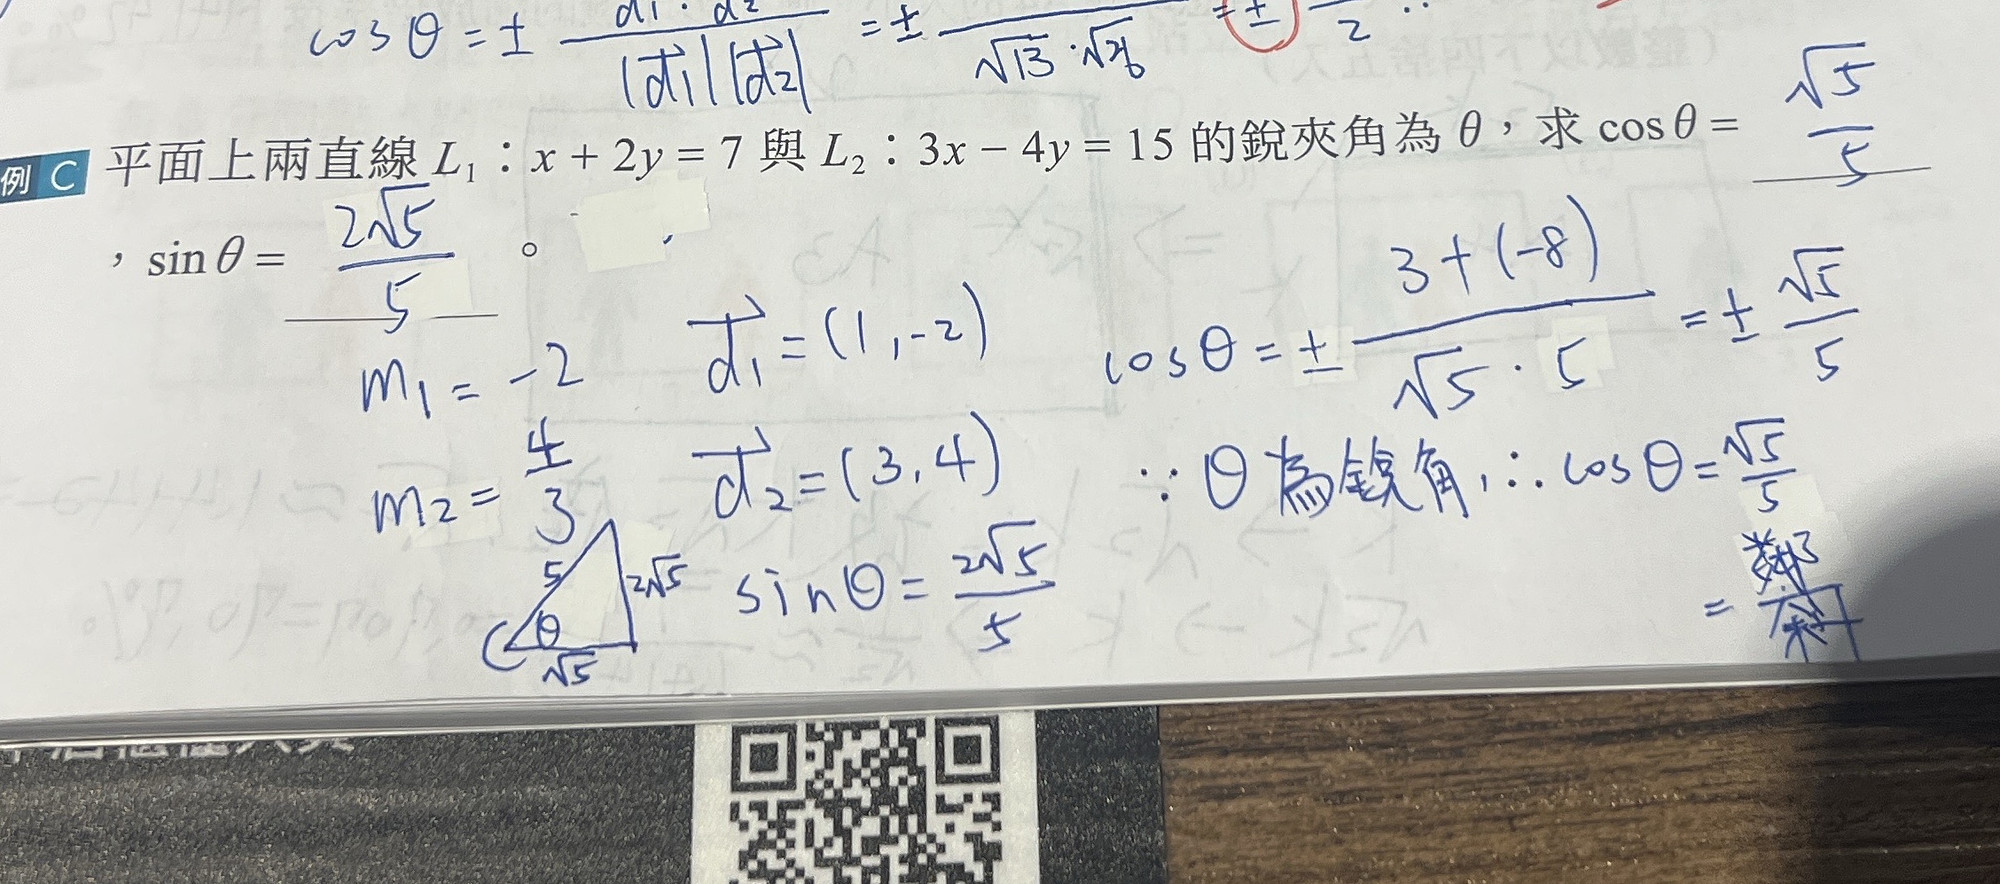 cos θ = ± d₁ · d₂ / |d₁| |d₂| = ± / √13 · √26 = ± / 2 ∵
(整數以下四捨五入)
例 C 平面上兩直線 L₁：x + 2y = 7 與 L₂：3x − 4y = 15 的銳夾角為 θ，求 cos θ = √5/5
，sin θ = 2√5/5 。
m₁ = -2
d₁ = (1, -2)
cos θ = ± 3+(-8) / √5 · 5 = ± √5/5
m₂ = 4/3
d₂ = (3, 4)
∵ θ 為銳角, ∴ cos θ = √5/5
5
2√5
θ
√5
sin θ = 2√5/5
=